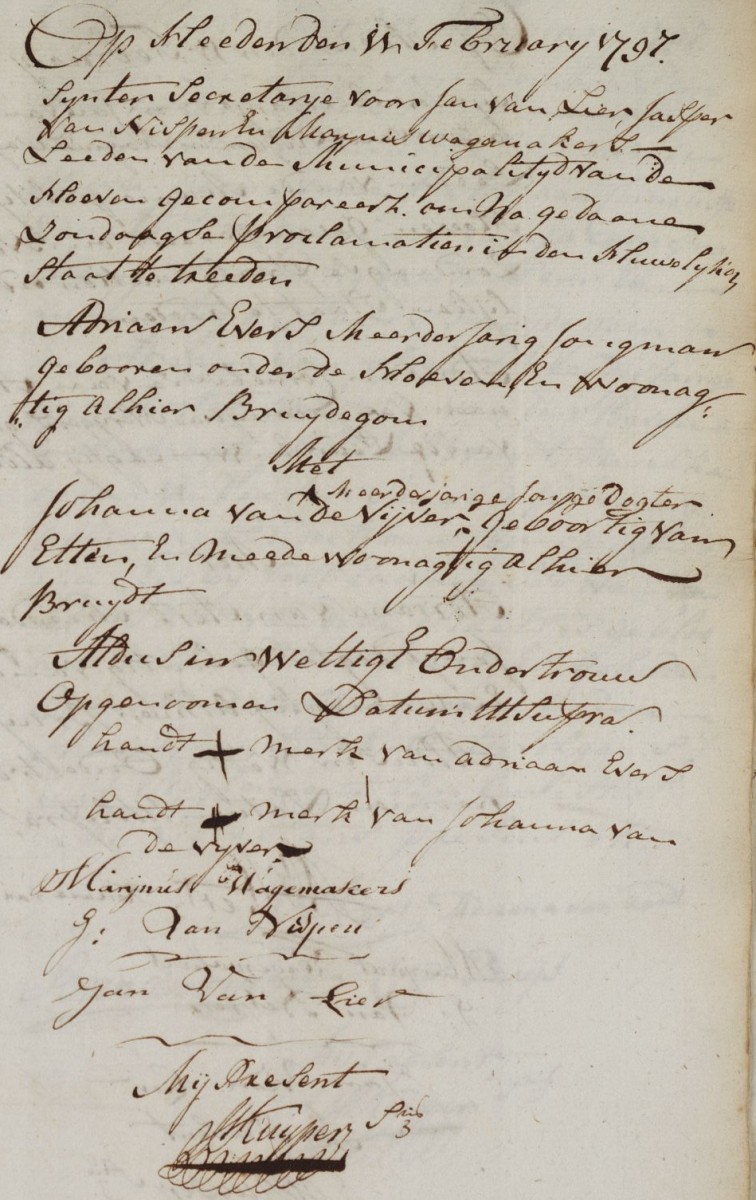 Op Heeden den 11 February 1797.
syn ter Secretarye voor Jan van Lier, Jasper
van Nispen En Marynus wagemakers
Leeden van de Municipalityd van de
Hoeven gecompareert. om Na gedaane
Zondaagse Proclamatien in den Huwelyken
Staat te treeden
Adriaan Evers Meerderjarig Jongman
gebooren onder de Hoeven, En woonag¬
tig Alhier Bruydegom
Met
Meerderjarige Jonge Dogter
Johanna van de Vijver, geboortig van
Etten, En Meede woonagtig Alhier
Bruydt
Aldus in Wettige Ondertrouw
Opgenoomen Datum Ut Supra.
handt + merk van adriaan Evers
handt + merk van Johanna van
de vyver
Marijnus Wagemakers
J: Van Nispen
Jan Van Lier
Mij Present
Kuyper